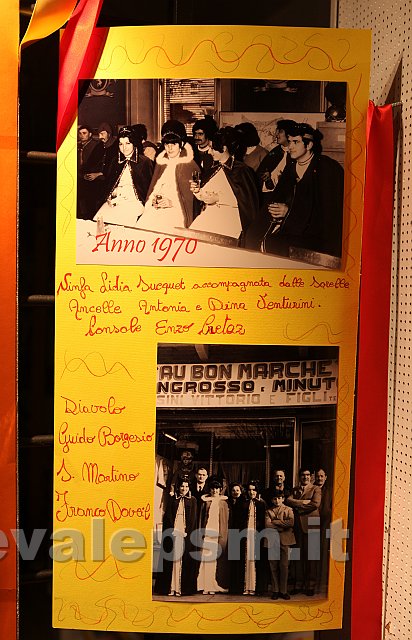 Anno 1970
Ninfa Lidia Sucquet accompagnata dalle sorelle
Ancelle Antonia e Dina Venturini.
Console Enzo Cretaz
AU BON MARCHE
INGROSSO E MINUT
SINI VITTORIO E FIGLI
Diavolo
Guido Borgesio
S. Martino
Franco
evalepsm.it